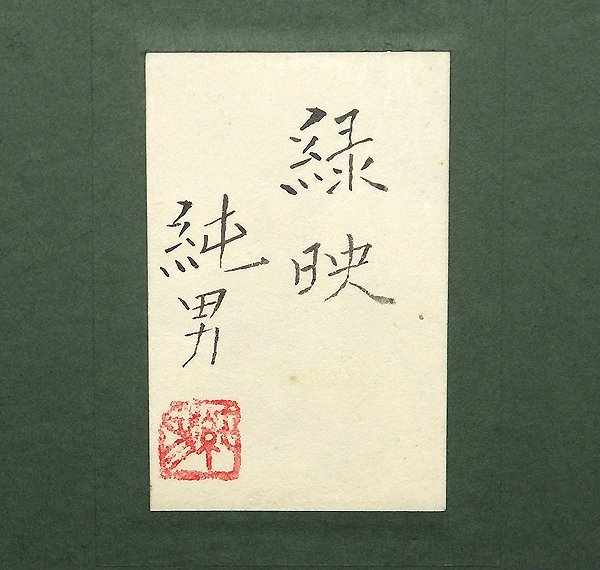 緑映
純男